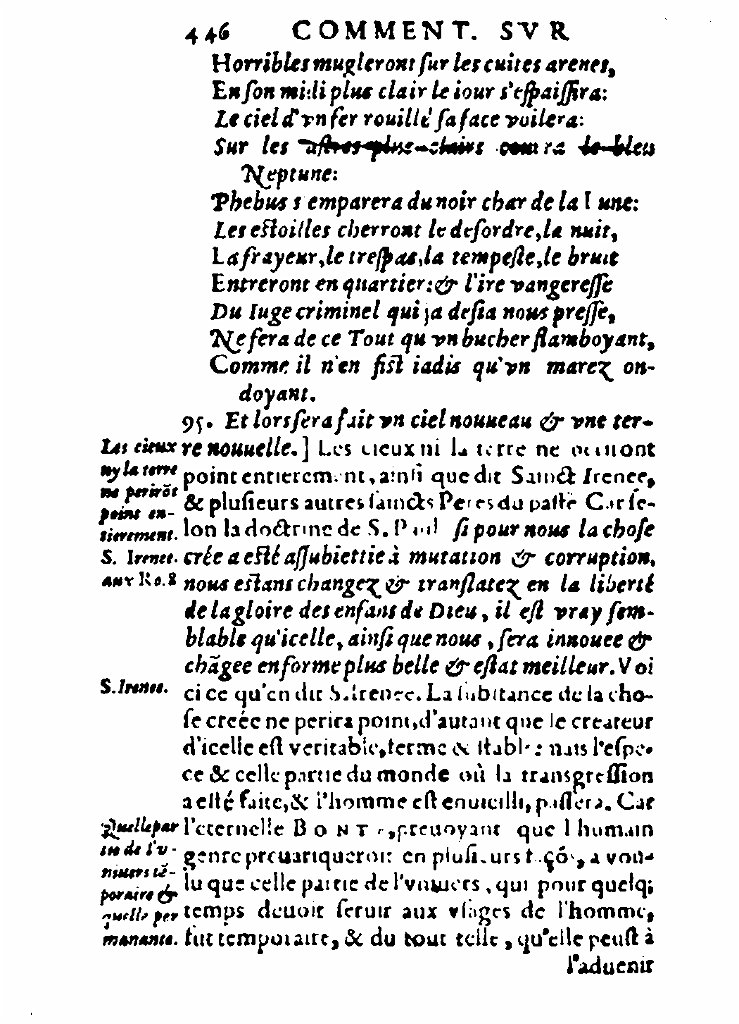 446 COMMENT. SVR
Horribles mugleront sur les cuites arenes,
En son midi plus clair le iour s'espaissira:
Le ciel d'vn fer rouillé sa face voilera:
Sur les astres plus clairs courra le bleu
Neptune:
Phebus s'emparera du noir char de la Lune:
Les estoilles cherront le desordre, la nuit,
La frayeur, le trespas, la tempeste, le bruit
Entreront en quartier: & l'ire vangeresse
Du Iuge criminel qui ja desia nous presse,
Ne fera de ce Tout qu'vn bucher flamboyant,
Comme il n'en fist iadis qu'vn marez on-
doyant.
95. Et lors sera fait vn ciel nouueau & vne ter-
re nouuelle.] Les cieux ni la terre ne periront
point entierement, ainsi que dit Sainct Irenee,
& plusieurs autres saincts Peres du passé Car se-
lon la doctrine de S. Paul si pour nous la chose
crée a esté assubiettie à mutation & corruption,
nous estans changez & translatez en la liberté
de la gloire des enfans de Dieu, il est vray sem-
blable qu'icelle, ainsi que nous, sera innouee &
chãgee en forme plus belle & estat meilleur. Voi
ci ce qu'en dit S. Irenee. La substance de la cho-
se creée ne perira point, d'autant que le createur
d'icelle est veritable, ferme & stable: mais l'espe-
ce & celle partie du monde où la transgression
a esté faite, & l'homme est enuieilli, passera. Car
l'eternelle BONTE, preuoyant que l'humain
genre preuariqueroit en plusieurs façõs, a vou-
lu que celle partie de l'vniuers, qui pour quelq;
temps deuoit seruir aux vsages de l'homme,
fut temporaire, & du tout telle, qu'elle peust à
l'aduenir
Les cieux
ny la terre
ne perirõt
point en-
tierement.
S. Irenee.
aux Ro. 8
S. Irenee.
Quelle par
tie de l'v-
niuers tẽ-
poraire &
quelle per
manante.